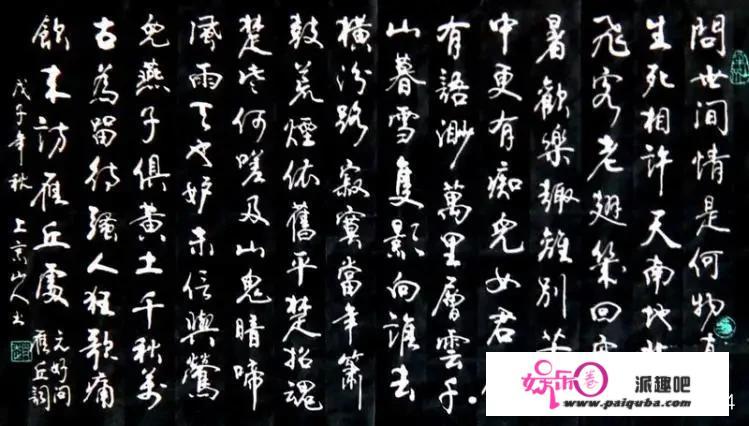 問世間情是何物直
生死相許天南地
飛客老翅幾回
暑歡樂趣離別苦
中更有痴兒女君
有語渺萬里層雲千
山暮雪隻影向誰去
橫汾路寂寞當年簫
鼓荒煙依舊平楚招魂
楚些何嗟及山鬼暗啼
風雨天也妒未信與鶯
兒燕子俱黃土千秋萬
古為留待騷人狂歌痛
飲來訪雁丘處
元好問
雁丘詞
戊子年秋上京山人书
娱乐圈
派趣吧
www.paiquba.com
4